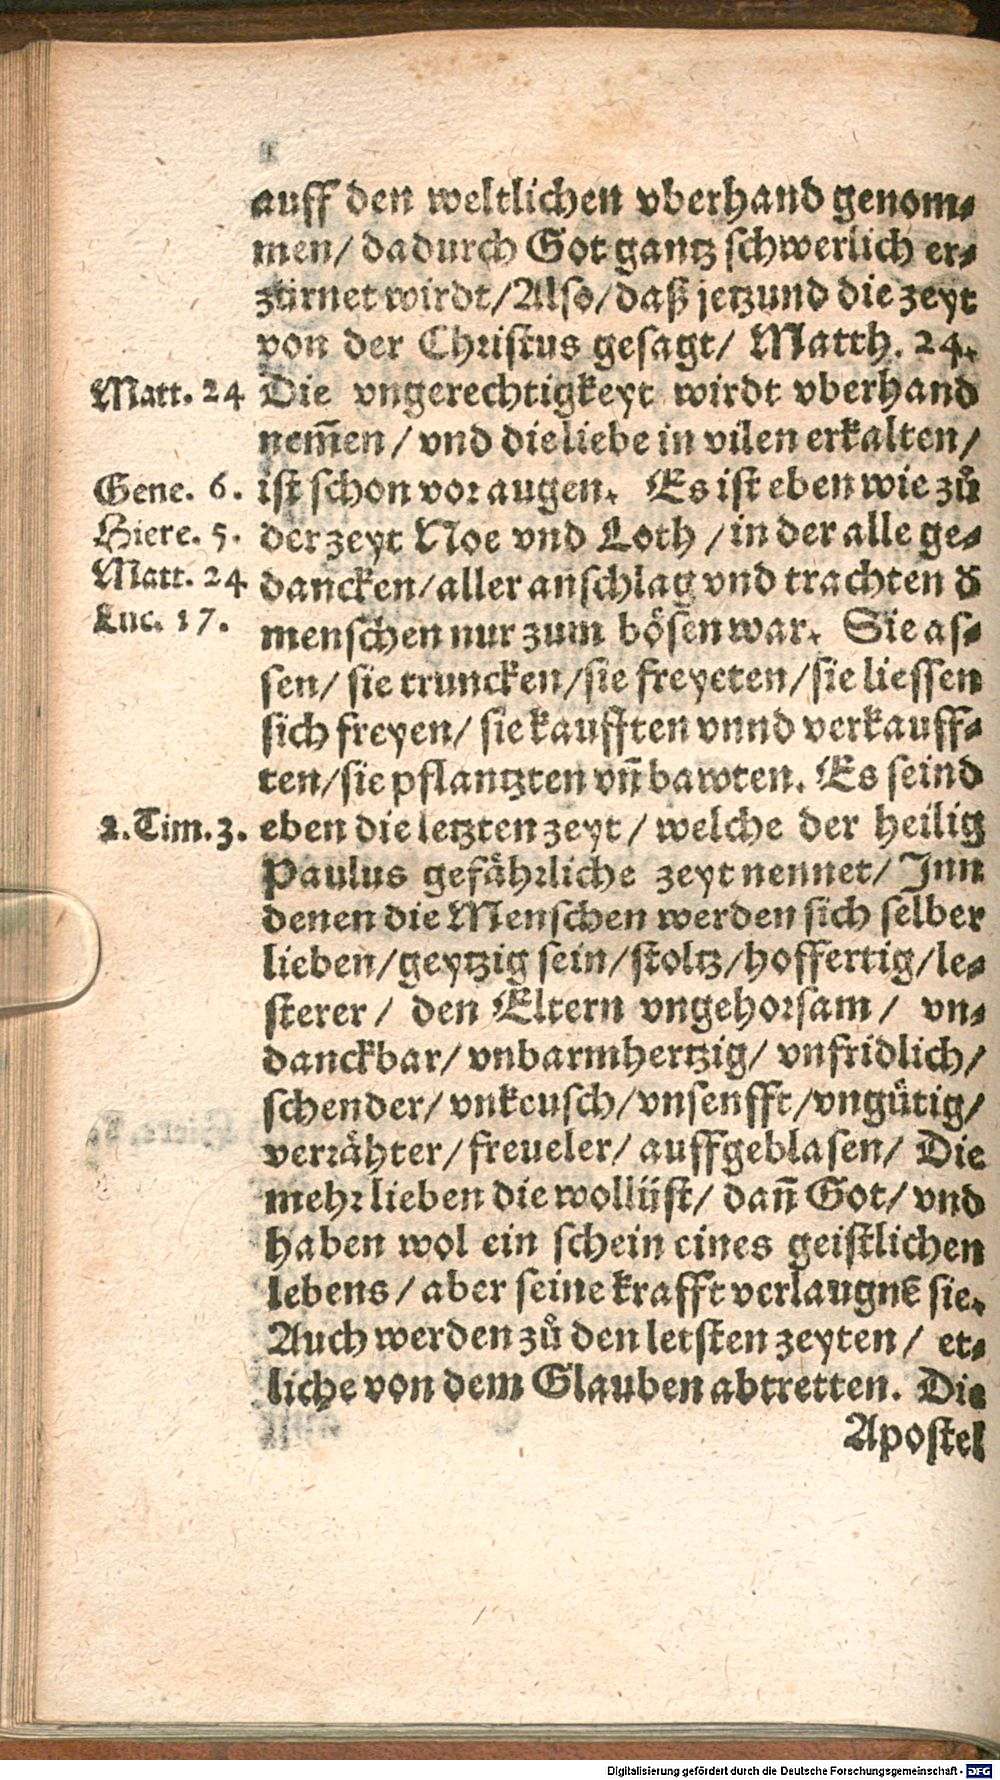 auff den weltlichen vberhand genom⸗
men/ dadurch Got gantz schwerlich er⸗
zürnet wirdt/Also/daß jetzund die zeyt
von der Christus gesagt/ Matth. 24.
Matt. 24 Die vngerechtigkeyt wirdt vberhand
nem̅en / vnd die liebe in vilen erkalten/
Gene. 6. ist schon vor augen. Es ist eben wie zů
Hiere. 5. der zeyt Noe vnd Loth / in der alle ge⸗
Matt. 24 dancken/aller anschlag vnd trachten d̕
Luc. 17. menschen nur zum bösen war. Sie as⸗
sen/ sie truncken/sie freyeten/sie liessen
sich freyen/ sie kaufften vnnd verkauff⸗
ten/sie pflantzten vn̅ bawten. Es seind
2. Tim. 3. eben die letzten zeyt / welche der heilig
Paulus gefährliche zeyt nennet/ Jnn
denen die Menschen werden sich selber
lieben/geytzig sein/stoltz/hoffertig/le⸗
sterer / den Eltern vngehorsam / vn⸗
danckbar/ vnbarmhertzig/ vnfridlich/
schender/ vnkeusch/vnsenfft/vngütig/
verrähter/ freueler/ auffgeblasen/ Die
mehr lieben die wollüst/ dan̅ Got/ vnd
haben wol ein schein eines geistlichen
lebens / aber seine krafft verlaugne̅ sie.
Auch werden zů den letsten zeyten / et⸗
liche von dem Glauben abtretten. Die
Apostel
Digitalisierung gefördert durch die Deutsche Forschungsgemeinschaft - DFG